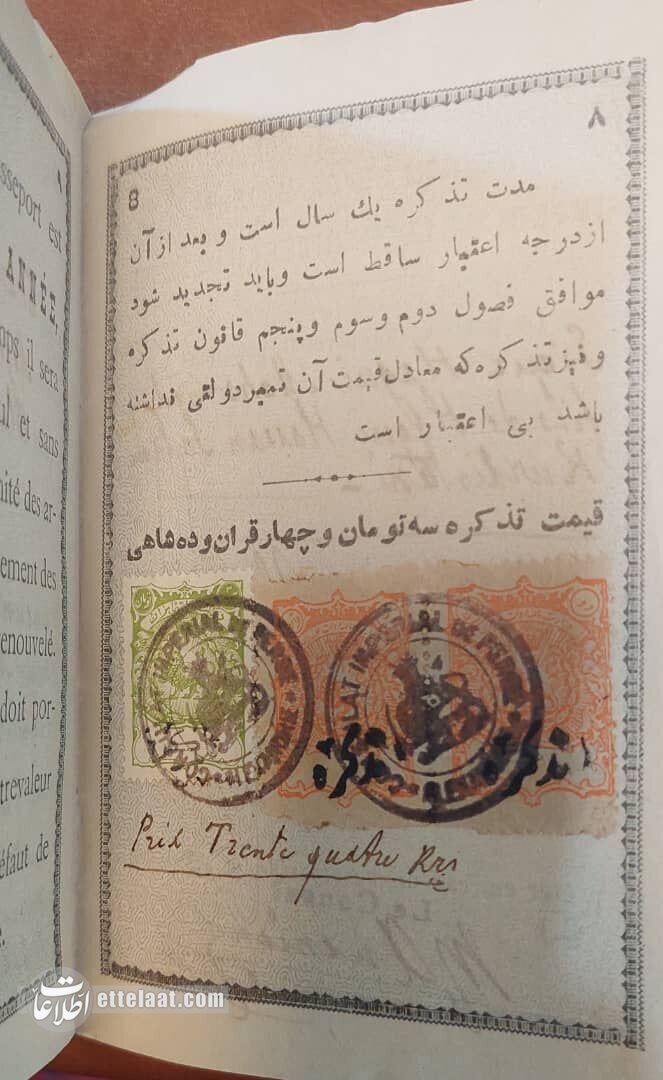 ٨
8
مدت تذکره یك سال است و بعد از آن
از درجه اعتبار ساقط است و باید تجدید شود
موافق فصول دوم و سوم و پنجم قانون تذکره
و نیز تذکره که معادل قیمت آن تمبر دولتی نداشته
باشد بی اعتبار است
قیمت تذکره سه تومان و چهار قران و ده شاهی
IMPERIAL DE PERSE
IMPERIAL DE PERSE
تذکره
تذکره
Prix Trente quatre Krs
sseport est
ANNÉE,
mps il sera
ul et sans
nité des ar-
ement des
renouvelé.
doit por-
trevaleur
éfaut de
اطلاعات ettelaat.com